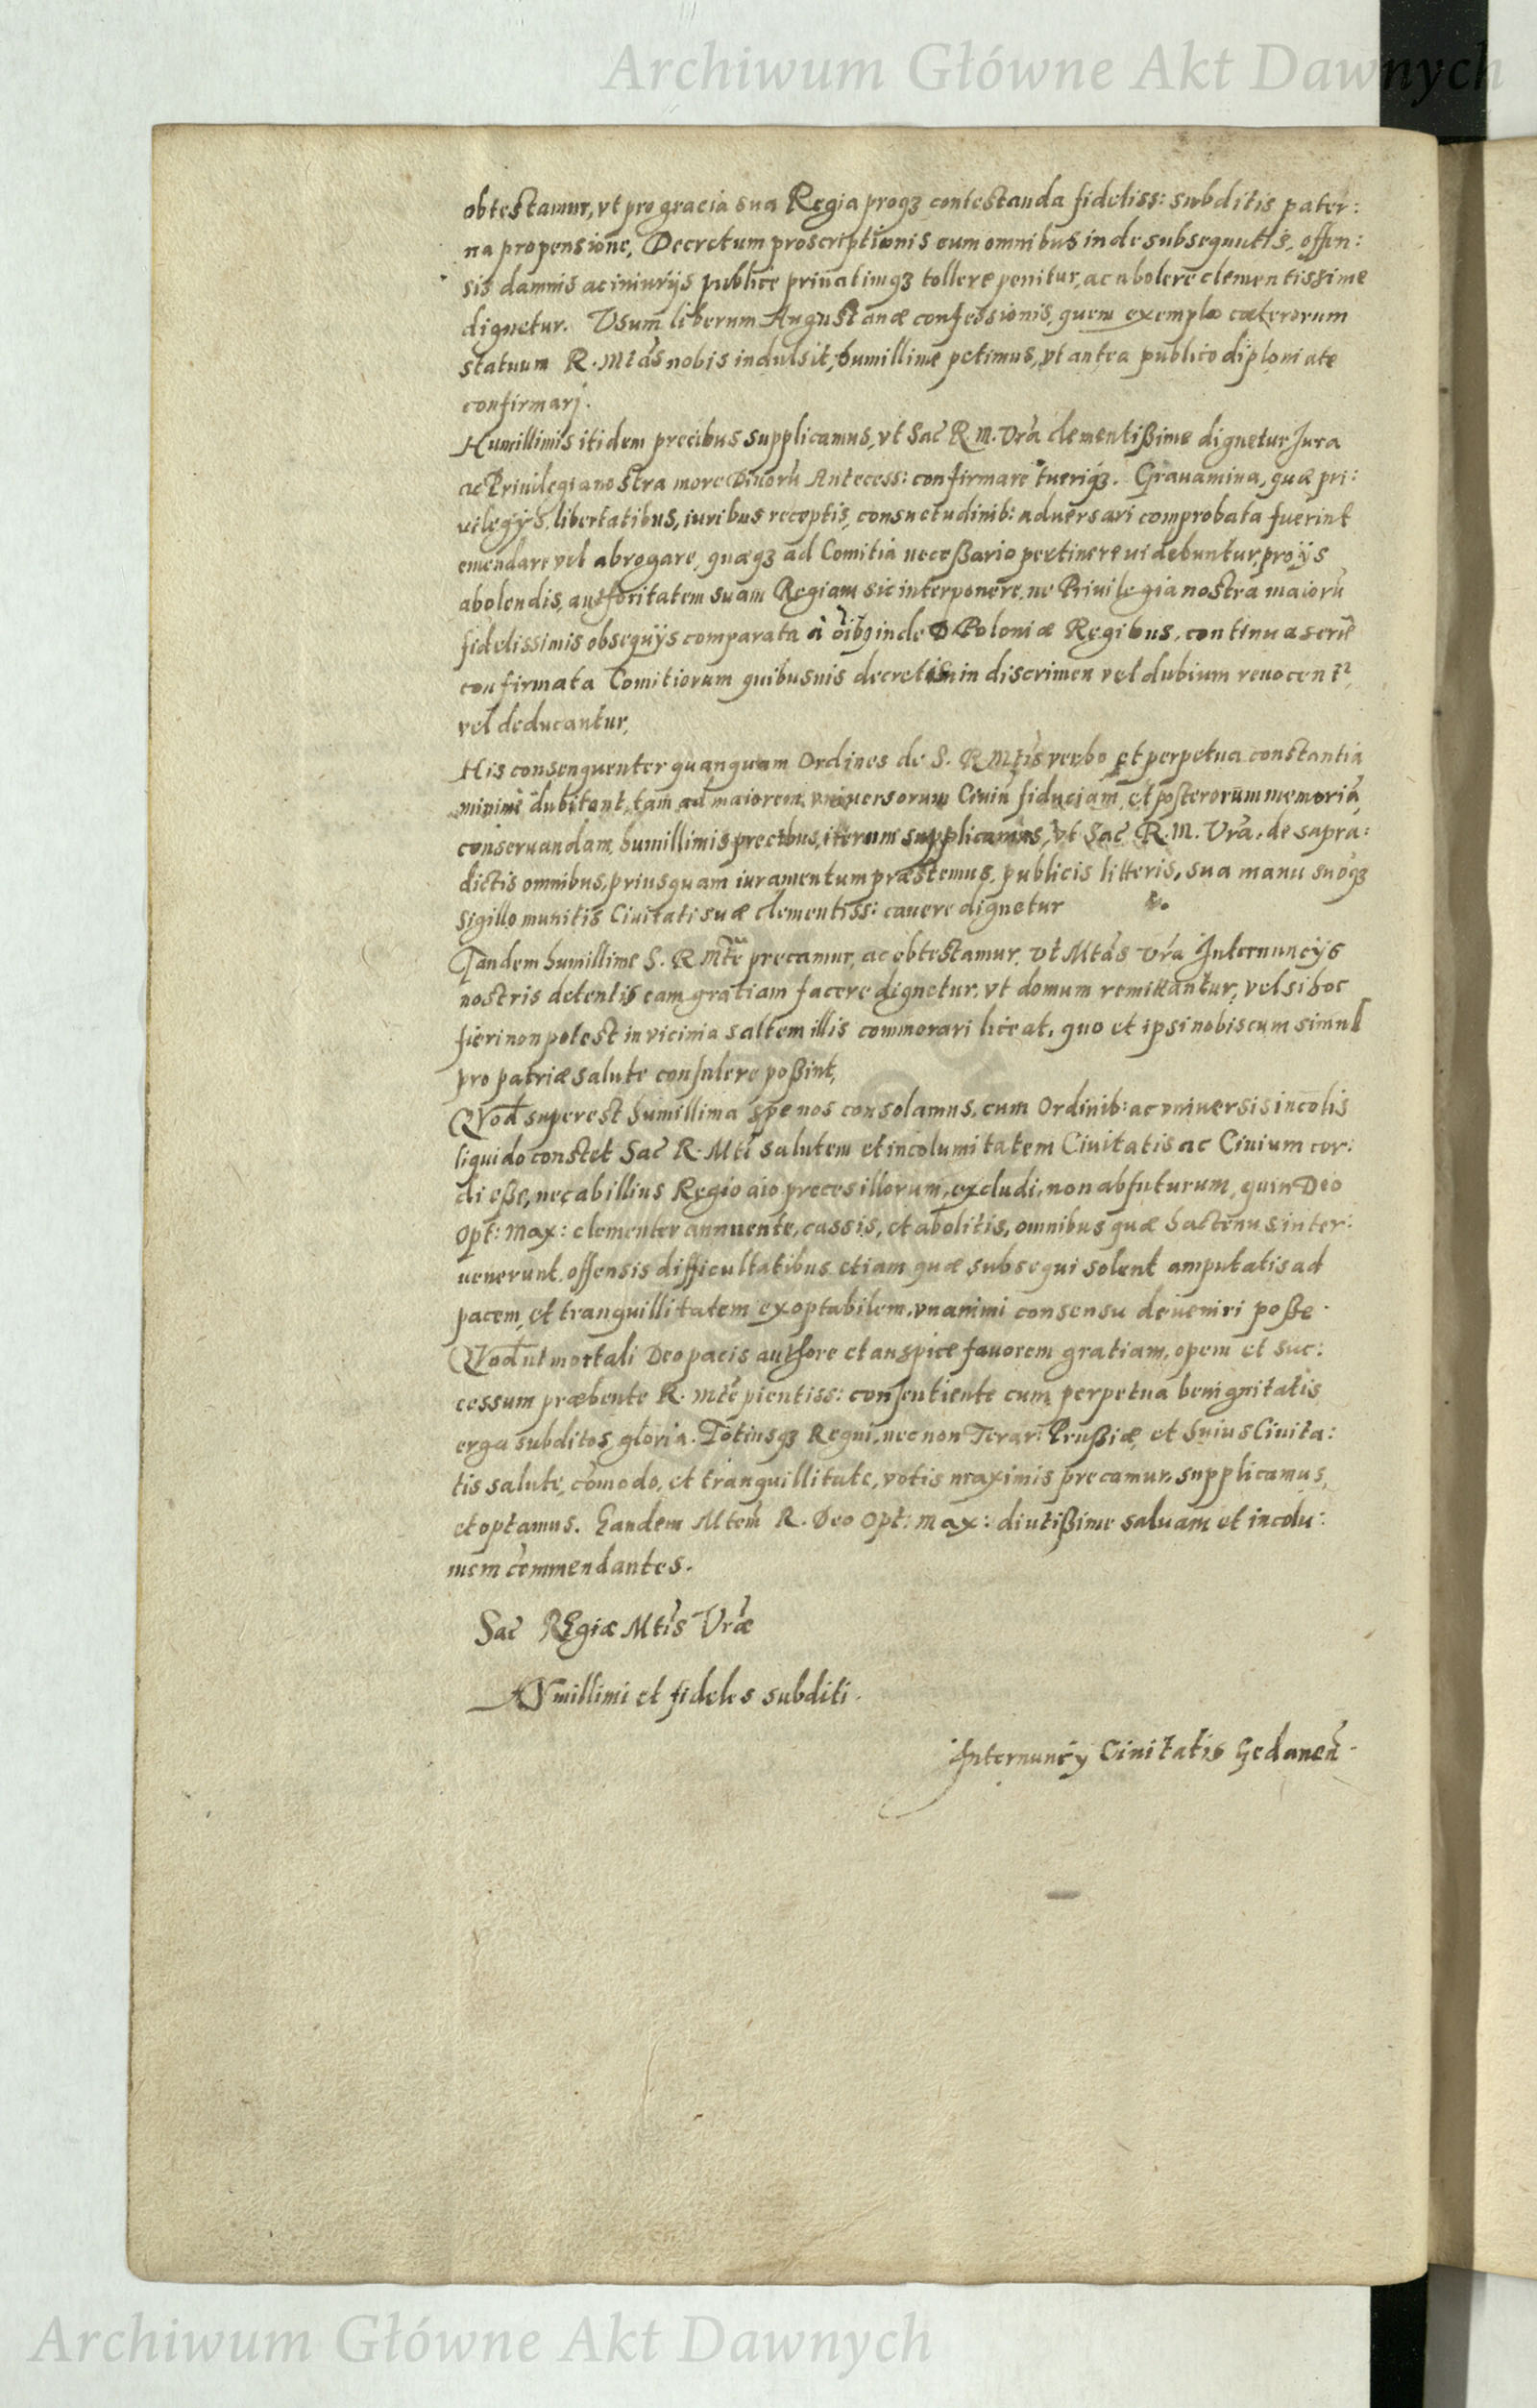 Archiwum Główne Akt Dawnych
obtestamur, vt pro gracia sua Regia proqz contestanda fideliss: subditis pater:
na propensione, Decretum proscriptionis cum omnibus inde subsequutis, offen:
sis damnis ac iniurijs publice priuatimqz tollere penitur, ac abolere clementissime
dignetur. Vsum liberum Augustanæ confessionis, quem exemplo cæterorum
statuum R. Mtas nobis indulsit, humillime petimus, vt antea publico diplomate
confirmarj.
Humillimis itidem precibus supplicamus, vt Sac R. M. Vra clementißime dignetur Jura
ac Priuilegia nostra more Diuorū Antecess: confirmare tueriqz. Grauamina, quæ pri:
uilegijs, libertatibus, iuribus receptis, consuetudinib: aduersari comprobata fuerint
emendare vel abrogare, quæqz ad Comitia neceßario pertinere uidebuntur, pro ijs
abolendis, authoritatem suam Regiam sic interponere, ne Priuilegia nostra maiorū
fidelissimis obsequijs comparata à oībz inde Poloniæ Regibus, continua serie
confirmata Comitiorum quibusuis decretis in discrimen vel dubium reuocent2,
vel deducantur,
His consenquenter quanquam Ordines de S. R Mtis verbo et perpetua constantia
minime dubitant, tam ad maiorem vniuersorum Ciuiū fiduciam, et posterorum memoriā
conseruandam, humillimis precibus, iterum supplicamus, vt Sac R. M. Vra. de supra:
dictis omnibus, priusquam iuramentum præstemus, publicis litteris, sua manu suoqz
sigillo munitis Ciuitati suæ clementiss: cauere dignetur
Tandem humillime S. R Mtē precamur, ac obtestamur, vt Mtas vra Internuncijs
nostris detentis eam gratiam facere dignetur, vt domum remittantur, vel si hoc
fieri non potest in vicinia saltem illis commorari liceat, quo et ipsi nobiscum simul
pro patriæ salute consulere poßint,
QVod superest humillima spe nos consolamus, cum Ordinib: ac vniuersis incolis
liquido constet Sac R. Mti salutem et incolumitatem Ciuitatis ac Ciuium cor:
di eße, nec ab illius Regio aīo preces illorum, excludi, non abfuturum, quin Deo
Opt: Max: clementer annuente, cassis, et abolitis, omnibus quæ hactenus inter:
uenerunt, offensis difficultatibus etiam quæ subsequi solent amputatis ad
pacem, et tranquillitatem exoptabilem, vnanimi consensu deueniri poße.
QVod ut mortali Deo pacis authore et auspice fauorem gratiam, opem et suc:
cessum præbente R. Mte pientiss: consentiente cum perpetua benignitatis
erga subditos gloria. Totiusqz Regni, nec non Terar: Prußiæ, et huius Ciuita:
tis salute, cōmodo, et tranquillitate, votis maximis precamur, supplicamus,
et optamus. Eandem Mtem R. Deo Opt: Max: diutißime saluam et incolu:
mem commendantes.
Sac REgiæ Mtis Vræ
HVmillimi et fideles subditi.
Internuncy Ciuitatis Gedaneñ.
Archiwum Główne Akt Dawnych